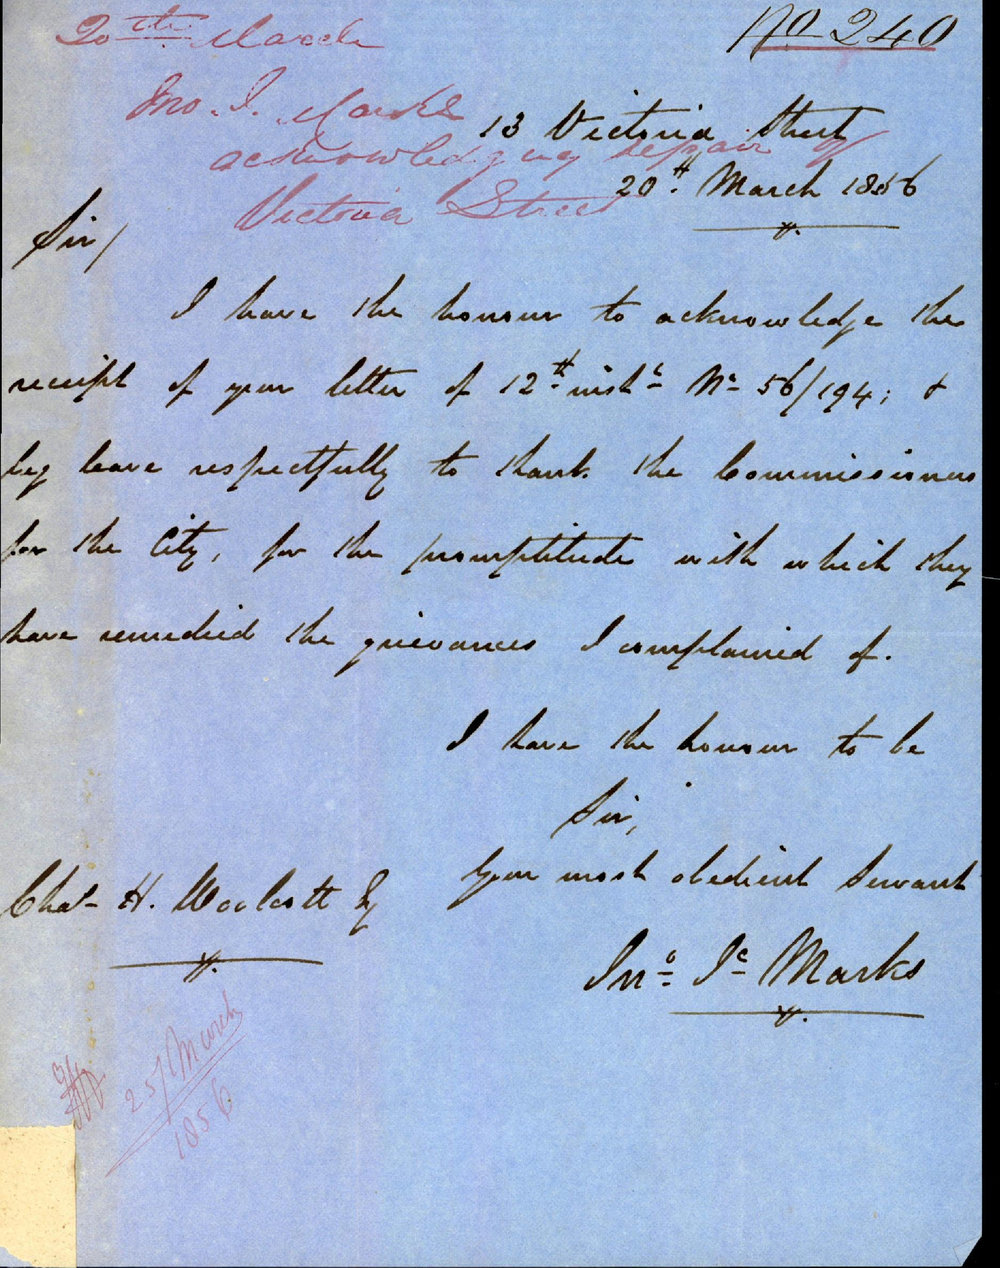 No 240
20th March
Jno. J. Marks
acknowledging repair of
Victoria Street
13 Victoria Street
20th. March 1856
Sir,
I have the honour to acknowledge the
receipt of your letter of 12th instt No 56/194; &
beg leave respectfully to thank the Commissioners
for the City, for the promptitude with which they
have remedied the grievances I complained of.
I have the honour to be
Sir,
Your most obedient Servant
Jno. Jc Marks
Chas H. Woolcott Esq
25/March
1856